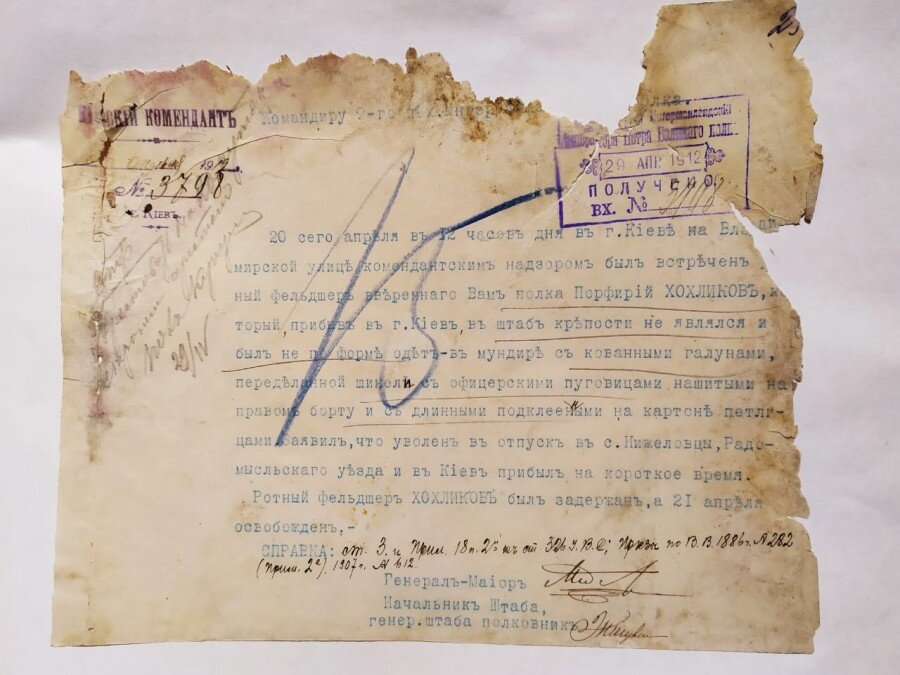 КІЕВСКІЙ КОМЕНДАНТЪ
Командиру
полка.
№ 3798
г. КІЕВЪ
Императора Петра Великаго полк
29 АПР 1912
ПОЛУЧЕНО
ВХ. №
29/IV
20 сего апрѣля въ 12 часовъ дня въ г.Кіевѣ на Влади
мирской улицѣ комендантским надзором былъ встрѣчен
ный фельдшер ввѣреннаго Вам полка Порфирій ХОХЛИКОВЪ, к
торый, прибыв въ г.Кіев, въ штаб крѣпости не являлся и
был не по формѣ одѣт-въ мундирѣ съ кованными галунами,
передѣланной шинели съ офицерскими пуговицами, нашитыми на
правом борту и съ длинными подклееными на картонѣ петли
цами заявил, что уволен въ отпуск въ с.Нижеловцы, Радо
мысльскаго уѣзда и въ Кіев прибыл на короткое время.
Ротный фельдшер ХОХЛИКОВЪ былъ задержан, а 21 апрѣля
освобожден.-
СПРАВКА: ст. 3. и Прим. 18 п. 2
1907 г. № 412.
Генерал-Маіоръ
Начальник Штаба,
генер.штаба полковник